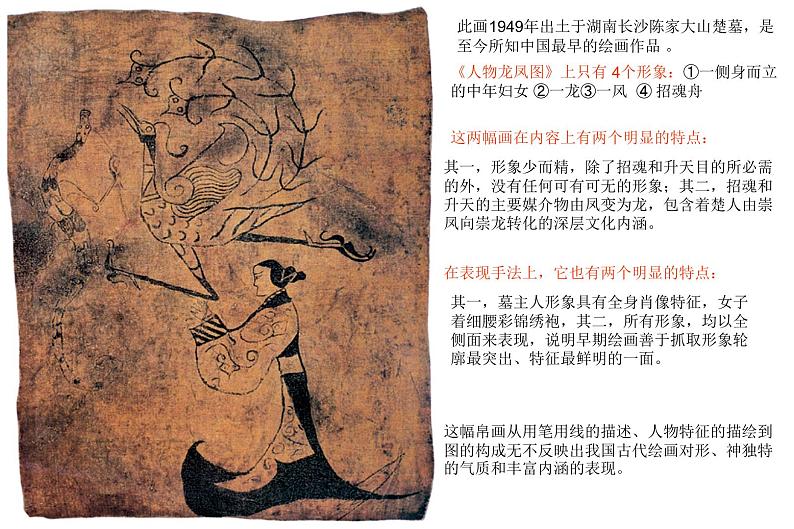 此画1949年出土于湖南长沙陈家大山楚墓，是
至今所知中国最早的绘画作品 。
《人物龙凤图》上只有 4个形象：①一侧身而立
的中年妇女 ②一龙③一凤  ④ 招魂舟
这两幅画在内容上有两个明显的特点：
其一，形象少而精，除了招魂和升天目的所必需
的外，没有任何可有可无的形象；其二，招魂和
升天的主要媒介物由凤变为龙，包含着楚人由崇
凤向崇龙转化的深层文化内涵。
在表现手法上，它也有两个明显的特点：
其一，墓主人形象具有全身肖像特征，女子
着细腰彩锦绣袍，其二，所有形象，均以全
侧面来表现，说明早期绘画善于抓取形象轮
廓最突出、特征最鲜明的一面。
这幅帛画从用笔用线的描述、人物特征的描绘到
图的构成无不反映出我国古代绘画对形、神独特
的气质和丰富内涵的表现。